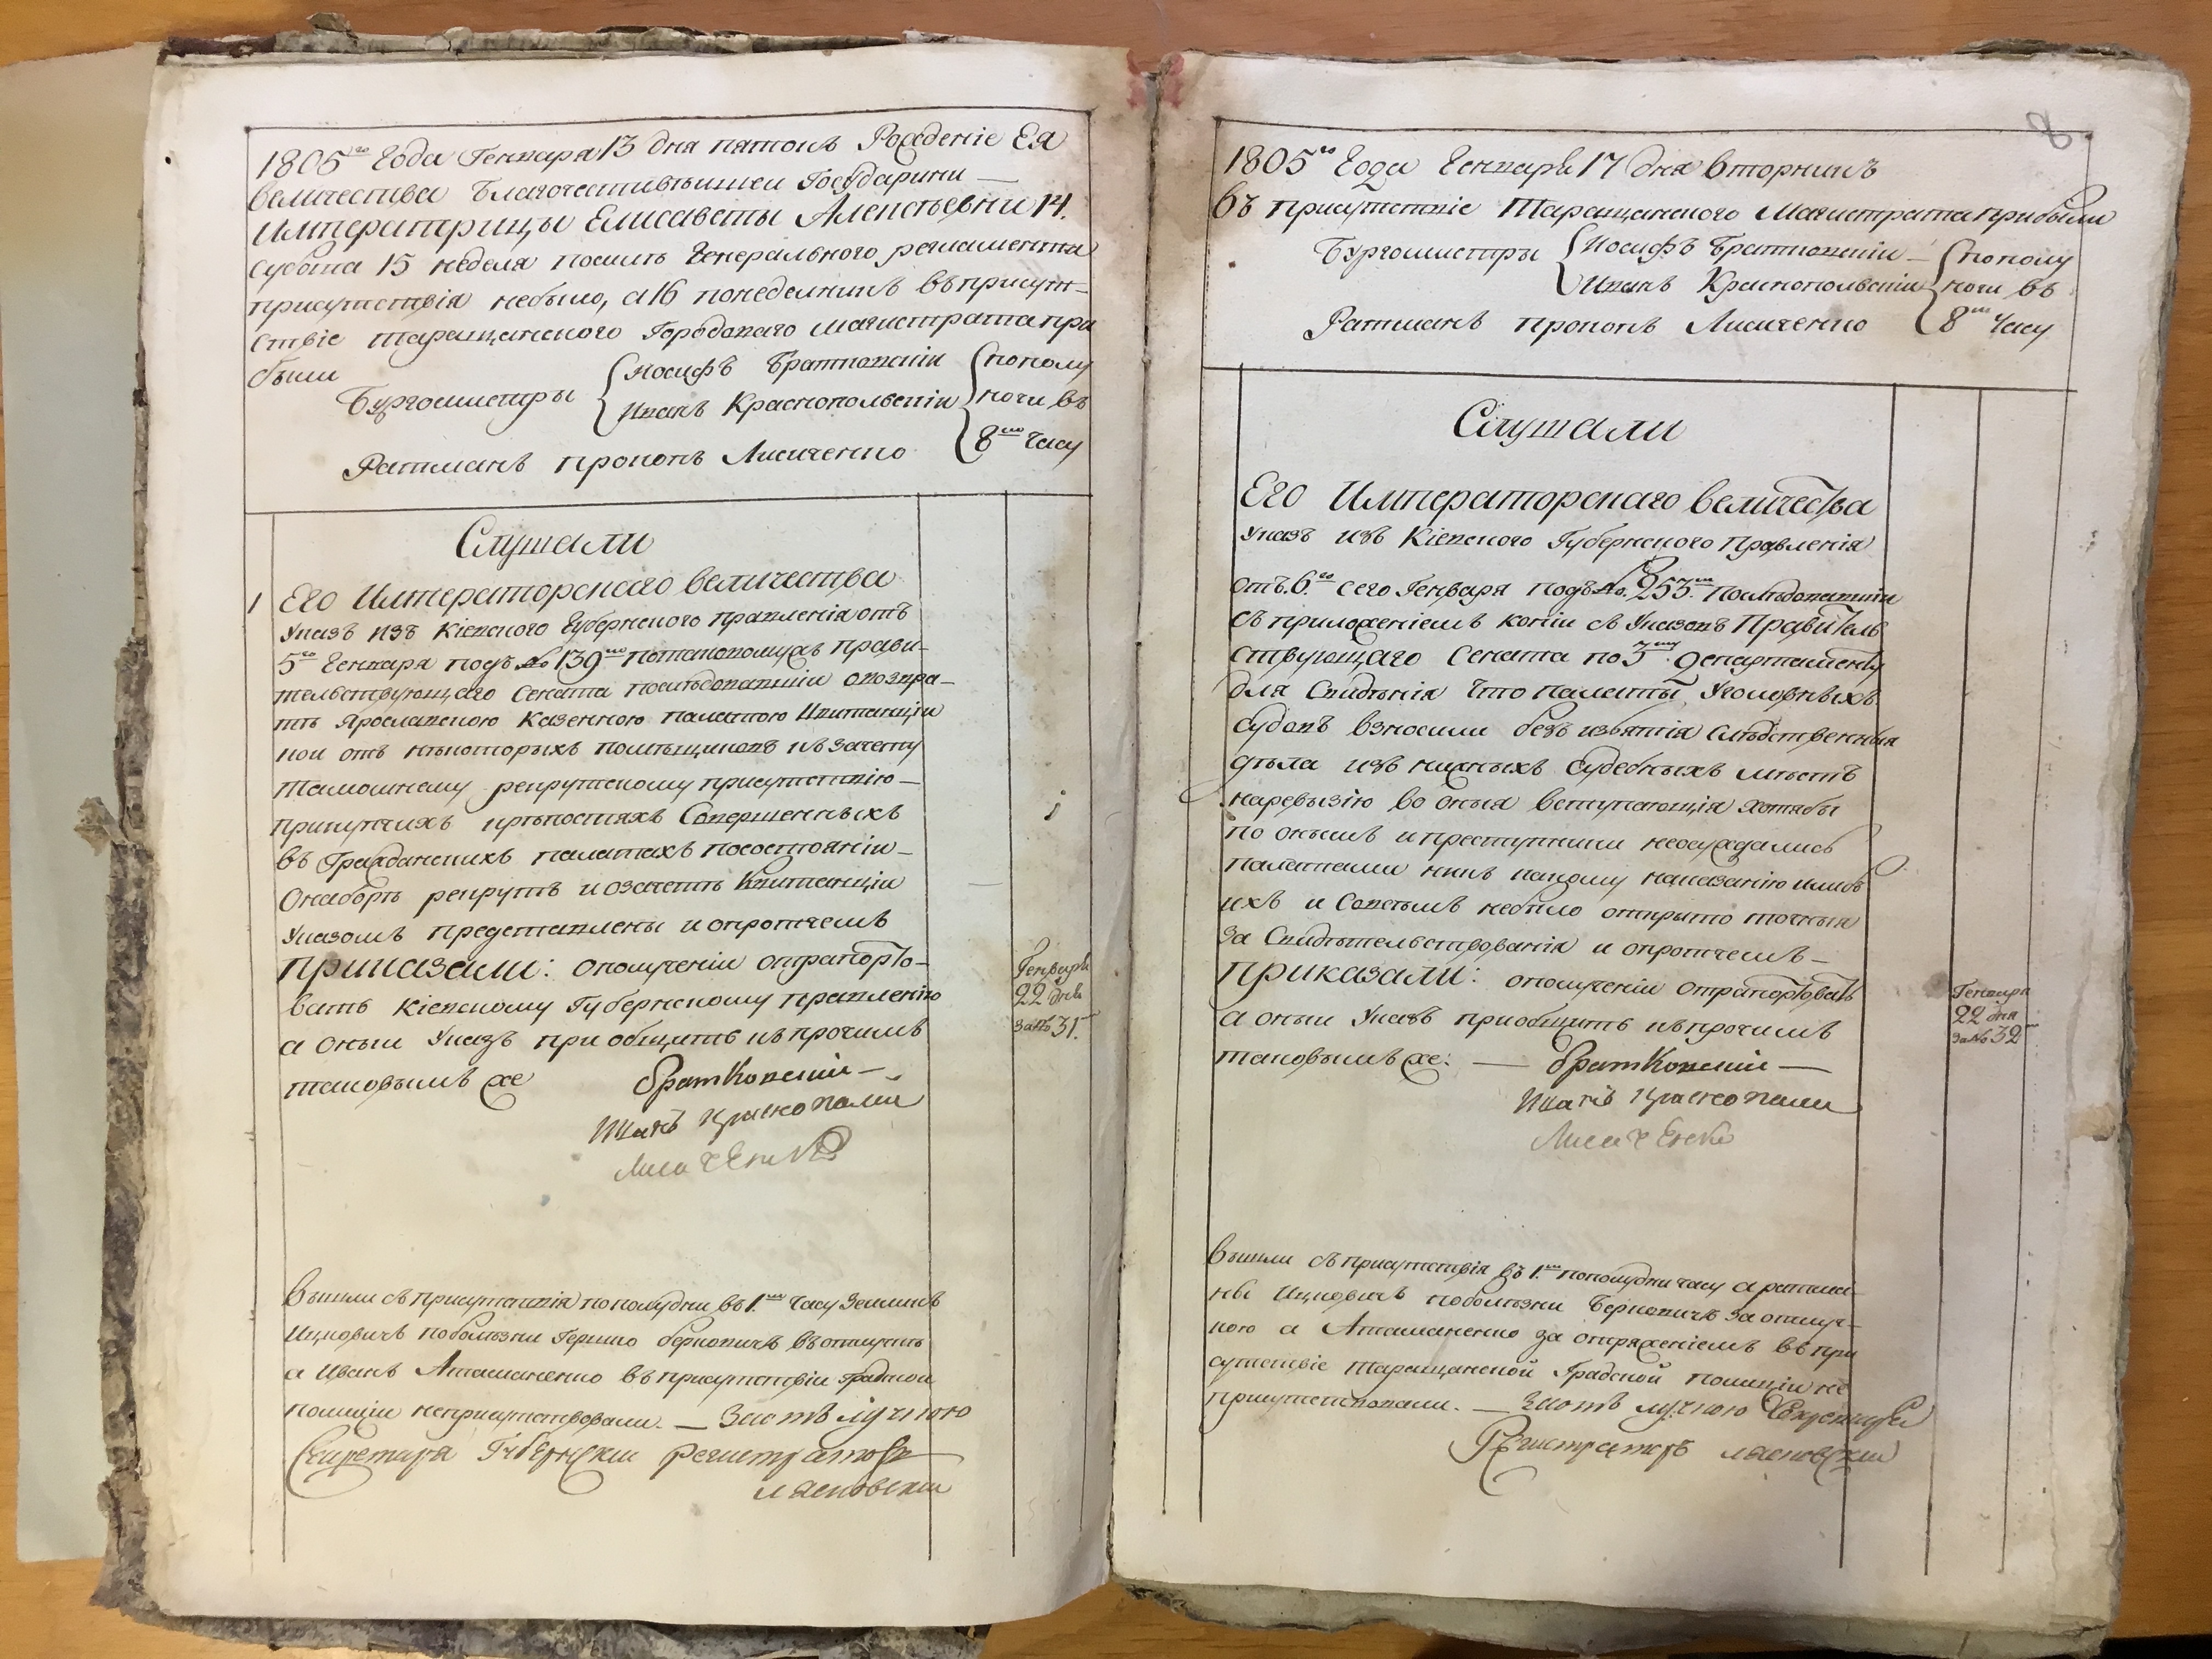 1805го Года Генваря 13 дня пятокъ Рожденіе Ея
величества Благочестивѣишеи Государини —
Императрицы Елисаветы Алексѣевни 14.
субота 15 неделя посилѣ Генерального регламента
присутствія небыло, а 16 понеделникъ въ присут-
ствіе таращанского Городового магистрата при
были
Бургомистры
Иосифъ Братковскіи
Иванъ Краснополвскіи
пополу
ночи въ
8мъ часу
Ратманъ прокопъ Лисиченко
Слушали
1
Его Императорскаго величества
Указъ изъ Кіевского Губернского правленія отъ
5го Генваря подъ № 139мъ потаковомужъ прави-
телствующаго Сената последовавшіи овозвра-
тѣ Ярославскою Казенною палатою Квитанціи
кои отъ нѣкоторыхъ помѣщиковъ въ зачету
тамошнему рекрутскому присутствію —
прикупчихъ крѣпостяхъ Совершенныхъ
въ Гражданскихъ палатахъ посостояніи —
Онаборѣ рекрутъ и озачетѣ Квитанціи
Указомъ представлены и опротчемъ
приказали: ополученіи отрапорто-
вать Кіевскому Губернскому правленію
а оныи Указъ приобщить къ прочимъ
таковымъ же
Генваря
22 дня
за № 31.
Братковскіи —
Иванъ Краснополски
Лисиченко
вышли съ присутствія пополудни въ 1мъ часу Зелманъ
Ицковичъ поболѣзни Гершко берковичъ въ отлучкѣ
а Иванъ Атаманенко въ присутствіи градской
полиціи неприсутствовали. —
Секретаря Губернскіи регистраторъ
8
1805го Года Генваря 17 дня вторникъ
въ присутствіе Таращанского Магистрата прибыли
Бургомистры
Иосифъ Братковскіи —
Иванъ Краснополвскіи
пополу
ночи въ
8мъ часу
Ратманъ прокопъ Лисиченко
Слушали
Его Императорскаго величества
Указъ изъ Кіевского Губернского Правленія
отъ 6го сего Генваря подъ № 253мъ последовавшіи
съ приложеніемъ копіи съ Указовъ Правитель
ствующаго Сената по 5му департаменту
для Свидѣнія что палаты Уголовныхъ
судовъ взносили безъ изъятія слѣдственныя
дѣла изъ нижныхъ судебныхъ мѣстъ
наревызію во оныя вступающія хотябы
по онымъ и преступники неосуждались
палатами никъ какому наказанію илибъ
ихъ и Совсѣмъ небыло открыто точныя
за Свидѣтельствованія и опротчемъ —
приказали: ополученіи отрапортовать
а оныи Указъ приобщить къ прочимъ
таковымъ же: —
Генваря
22 дня
за № 32
Братковскіи —
Иванъ Краснополски
Лисиченко
вышли съ присутствія въ 1мъ пополудни часу а ратма-
ны Ицковичъ поболѣзни Берковичъ за отлуч-
кою а Атаманенко за отряженіемъ въ при
сутствіе таращанской Градской полиціи не
присутствовали. —
Регистраторъ